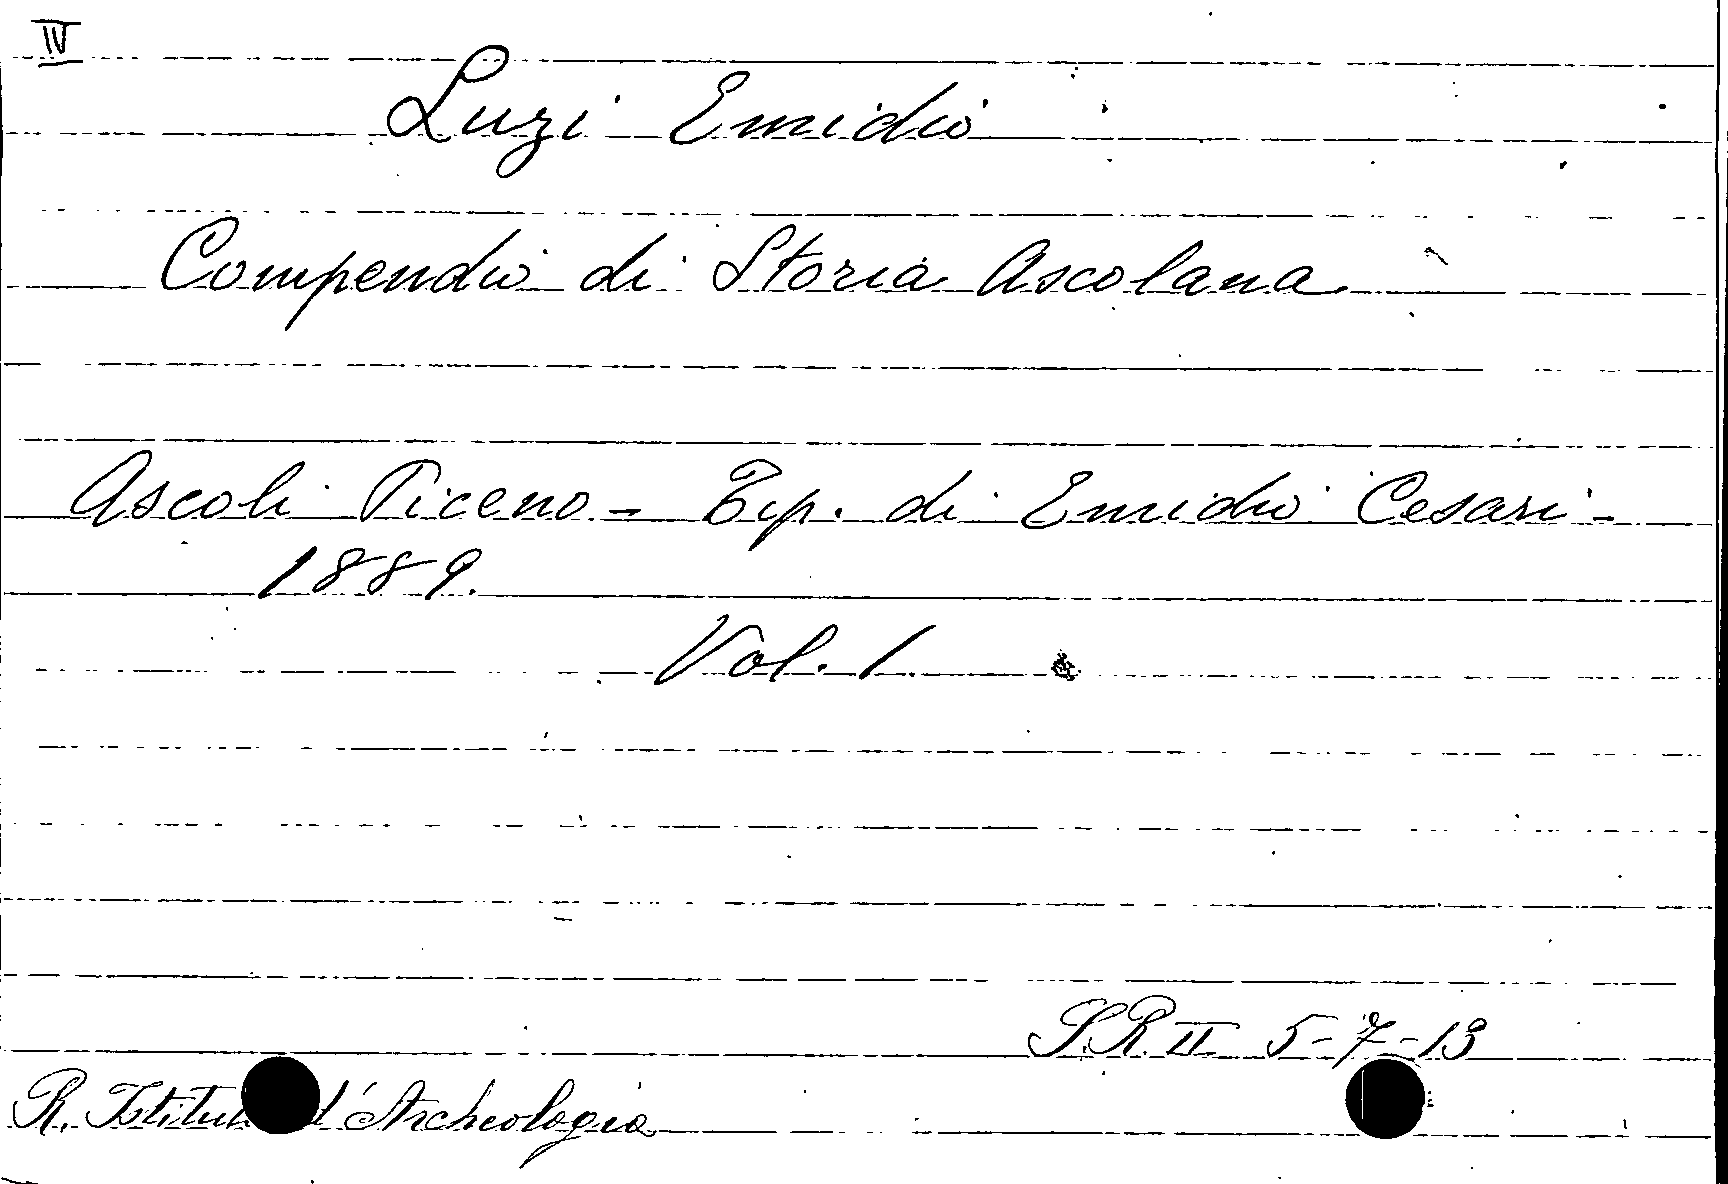 IV
Luzi Emidio
Compendio di Storia Ascolana
Ascoli Piceno - Tip. di Emidio Cesari -
1889.
Vol. 1
S.R. II 5-7-13
R. Istitut d'Archeologia